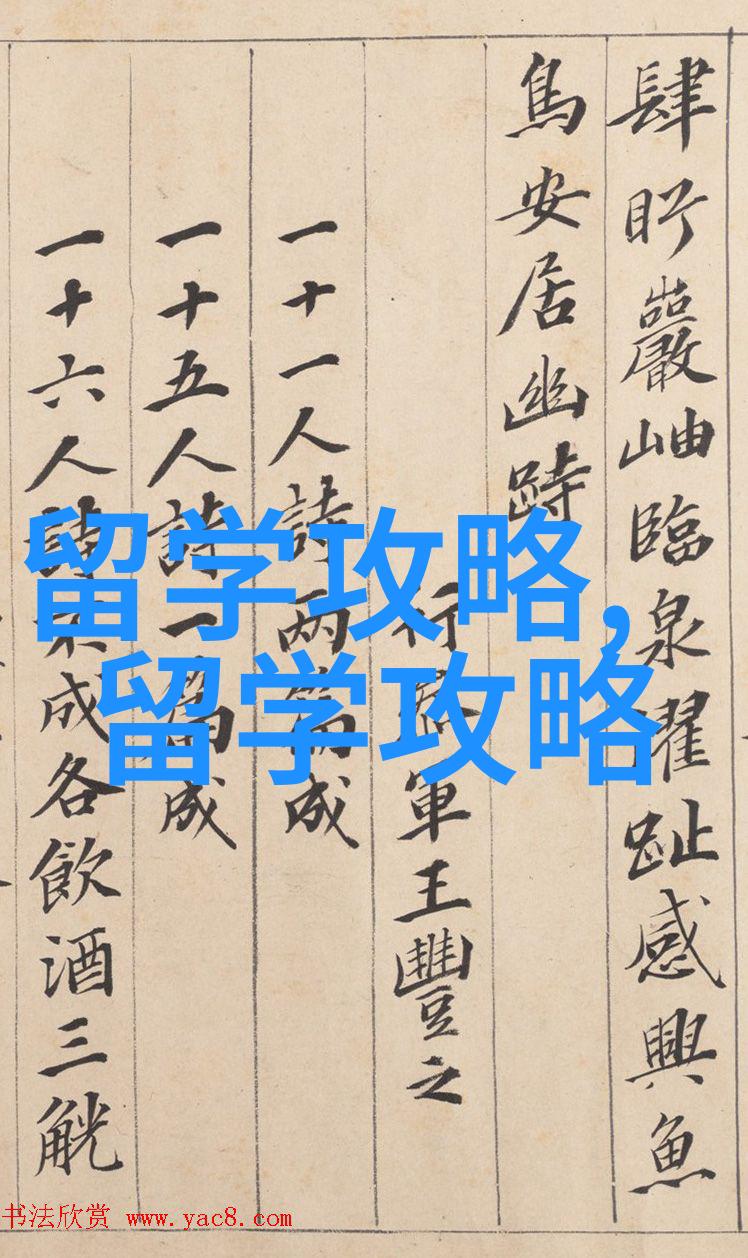 肆盱巖岫臨泉濯趾感興魚
鳥安居幽跱
行參軍王豐之
一十一人詩两篇成
一十五人詩一篇成
一十六人詩不成各飲酒三觥
留学攻略,
留学攻略
书法欣赏 www.yac8.com